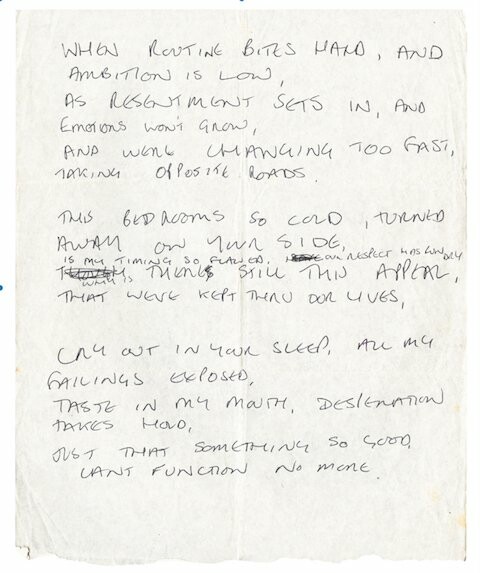 WHEN ROUTINE BITES HARD, AND
AMBITION IS LOW,
AS RESENTMENT SETS IN, AND
EMOTIONS WONT GROW,
AND WERE CHANGING TOO FAST,
TAKING OPPOSITE ROADS.
THIS BEDROOMS SO COLD, TURNED
AWAY ON YOUR SIDE,
IS MY TIMING SO FLAWED. OUR RESPECT RUN DRY
WHY IS
THERES STILL THIS APPEAL,
THAT WEVE KEPT THRU OUR LIVES,
CRY OUT IN YOUR SLEEP, ALL MY
FAILINGS EXPOSED,
TASTE IN MY MOUTH, DESPERATION
TAKES HOLD,
JUST THAT SOMETHING SO GOOD,
CANT FUNCTION NO MORE.